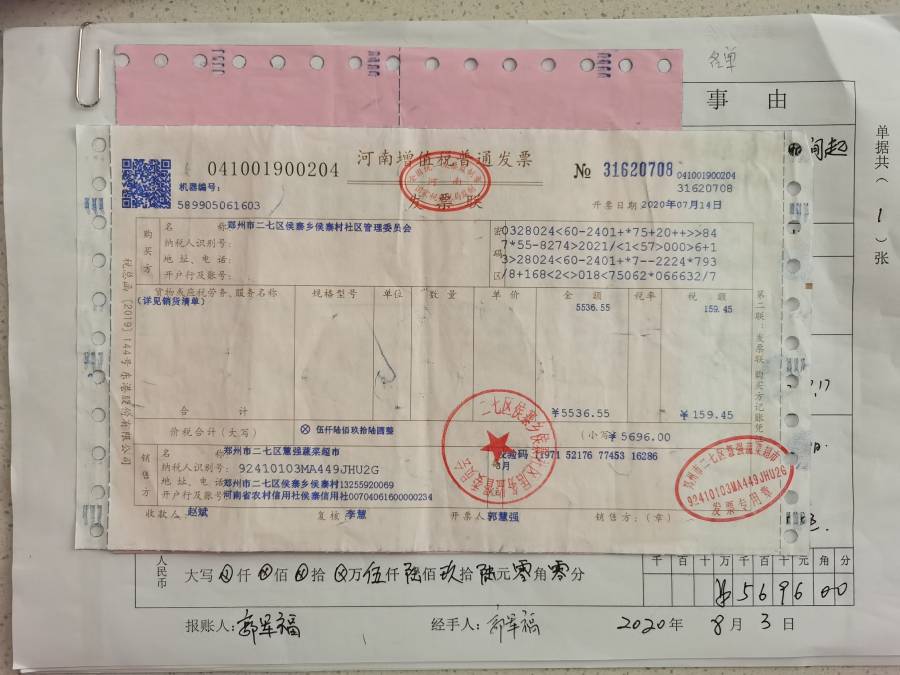 名单
事 由
单据共(1)张
河南增值税普通发票
041001900204
№ 31620708
041001900204
31620708
机器编号:
589905061603
发票联
开票日期 2020年07月14日
购买方
名 称 郑州市二七区侯寨乡侯寨村社区管理委员会
纳税人识别号:
地 址、电 话:
开户行及账号:
密码区
0328024<60-2401+*75+20++>>84
7*55-8274>2021/<1<57>000>6+1
3>28024<60-2401+*7--2224*793
/8+168<2<>018<75062*066632/7
货物或应税劳务、服务名称 规格型号 单位 数 量 单 价 金 额 税率 税 额
(详见销货清单) 5536.55 159.45
合 计 ¥5536.55 ¥159.45
价税合计(大写) ⊗ 伍仟陆佰玖拾陆圆整 (小写) ¥5696.00
销售方
名 称 郑州市二七区慧强蔬菜超市
纳税人识别号: 92410103MA449JHU2G
地 址、电 话 郑州市二七区侯寨乡侯寨村13255920069
开户行及账号 河南省农村信用社侯寨信用社00704061600000234
校验码 11971 52176 77453 16286
收款人 赵斌 复核 李慧 开票人 郭慧强 销售方:(章)
第二联:发票联 购买方记账凭证
郑州市二七区慧强蔬菜超市
92410103MA449JHU2G
发票专用章
人民币
大写 仟 佰 拾 万伍仟陆佰玖拾陆元零角零分
千 百 十 万 千 百 十 元 角 分
5 6 9 6 0 0
报账人: 郭军福 经手人: 郭军福 2020年 8月 3日